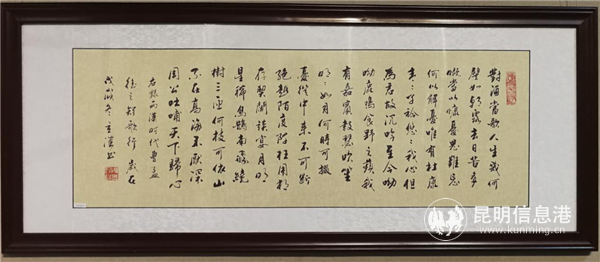 對酒當歌人生幾何
譬如朝露去日苦多
慨當以慷憂思難忘
何以解憂唯有杜康
青々子衿悠々我心但
為君故沉吟至今呦
呦鹿鳴食野之蘋我
有嘉賓鼓瑟吹笙
明々如月何時可掇
憂從中來不可斷
絕越陌度阡枉用相
存契闊談宴月明
星稀烏鵲南飛繞
樹三匝何枝可依山
不在高海不厭深
周公吐哺天下歸心
右錄兩漢時代曹孟
德之短歌行 歲在
戊戌冬
昆明信息港
www.kunming.cn